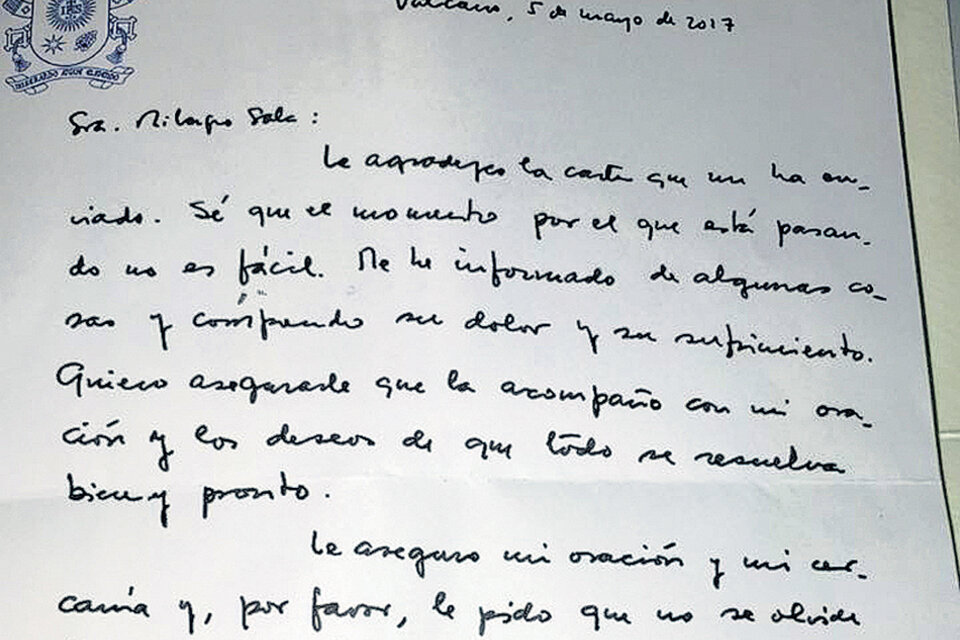 IHS
MISERANDO ATQUE ELIGENDO
Vaticano, 5 de mayo de 2017
Sra. Milagro Sala :
Le agradezco la carta que me ha en-
viado. Sé que el momento por el que está pasan-
do no es fácil. Me he informado de algunas co-
sas y comprendo su dolor y su sufrimiento.
Quiero asegurarle que la acompaño con mi ora-
ción y los deseos de que todo se resuelva
bien y pronto.
Le aseguro mi oración y mi cer-
canía y, por favor, le pido que no se olvide